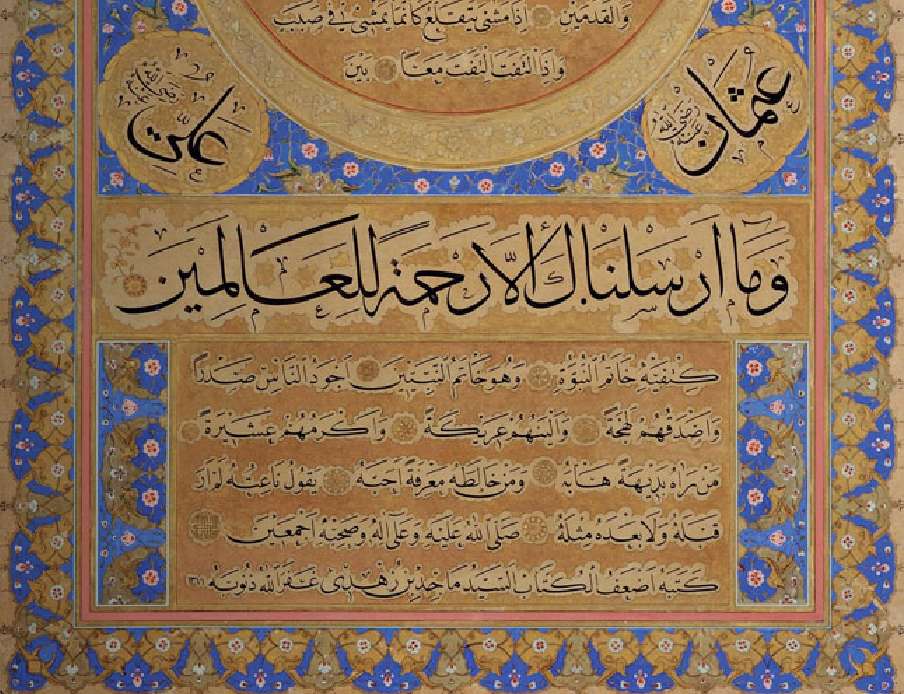 والقدمين إذا مشى يتقلع كأنما يمشي في صبب
وإذا التفت التفت معا بين
عثمان رضي الله عنه
علي رضي الله عنه
وما أرسلناك إلا رحمة للعالمين
كتفيه خاتم النبوة وهو خاتم النبيين أجود الناس صدرا
وأصدقهم لهجة وألينهم عريكة وأكرمهم عشيرة
من رآه بديهة هابه ومن خالطه معرفة أحبه يقول ناعته لم أر
قبله ولا بعده مثله صلى الله عليه وعلى آله وصحبه أجمعين
كتبه أضعف الكتاب السيد ماجد بن زهدي غفر الله ذنوبه